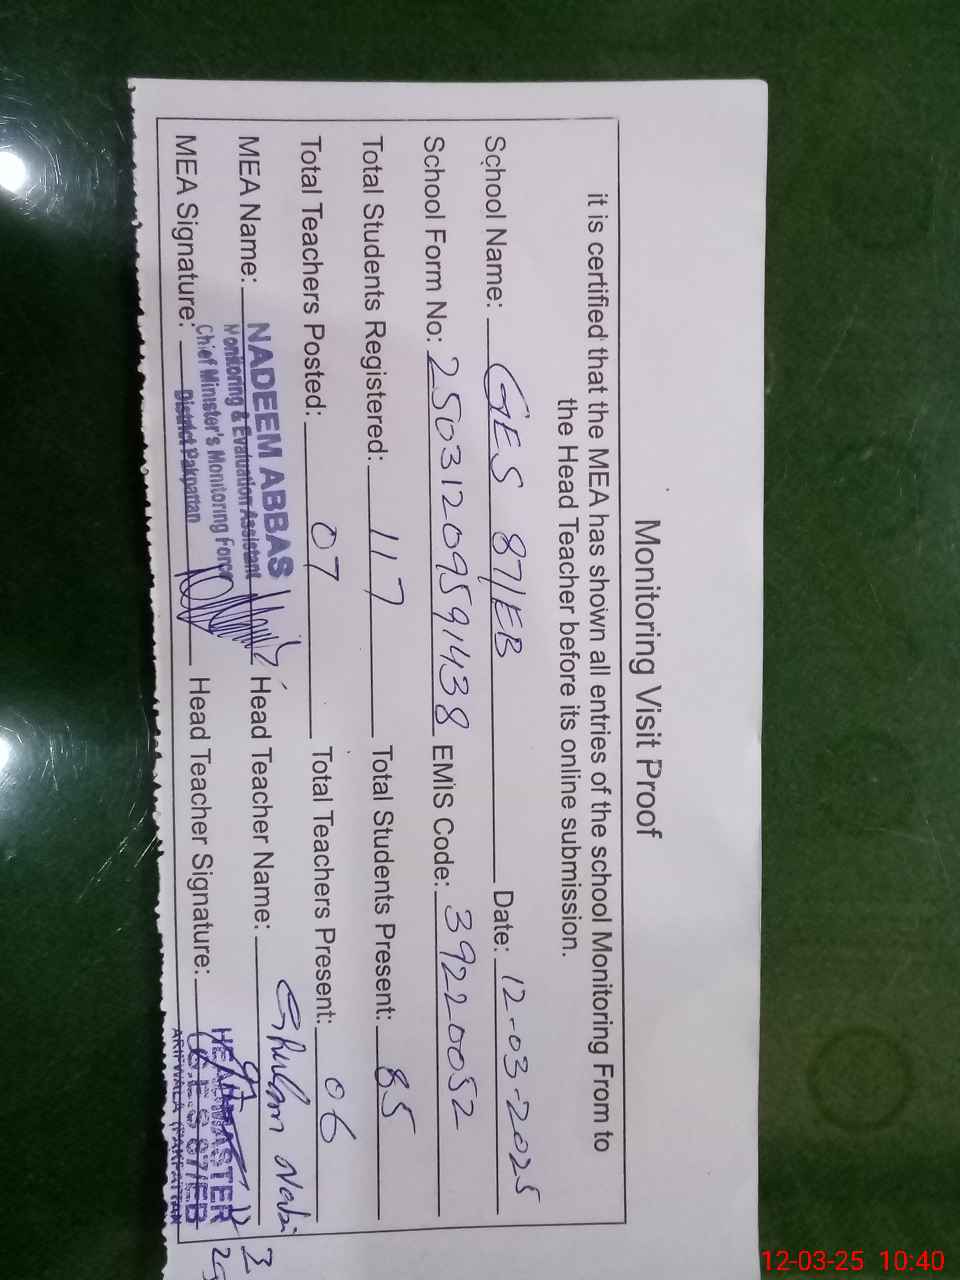 Monitoring Visit Proof
it is certified that the MEA has shown all entries of the school Monitoring From to
the Head Teacher before its online submission.
School Name: GES 87/EB Date: 12-03-2025
School Form No: 25031209591438 EMIS Code: 39220052
Total Students Registered: 117 Total Students Present: 85
Total Teachers Posted: 07 Total Teachers Present: 06
MEA Name: NADEEM ABBAS Head Teacher Name: Ghulam Nabi
Monitoring & Evaluation Assistant
Chief Minister's Monitoring Force
District Pakpattan
MEA Signature: Head Teacher Signature:
HEADMASTER
G.E.S 87/EB
ARIFWALA (PAKPATTAN
12-03-25 10:40